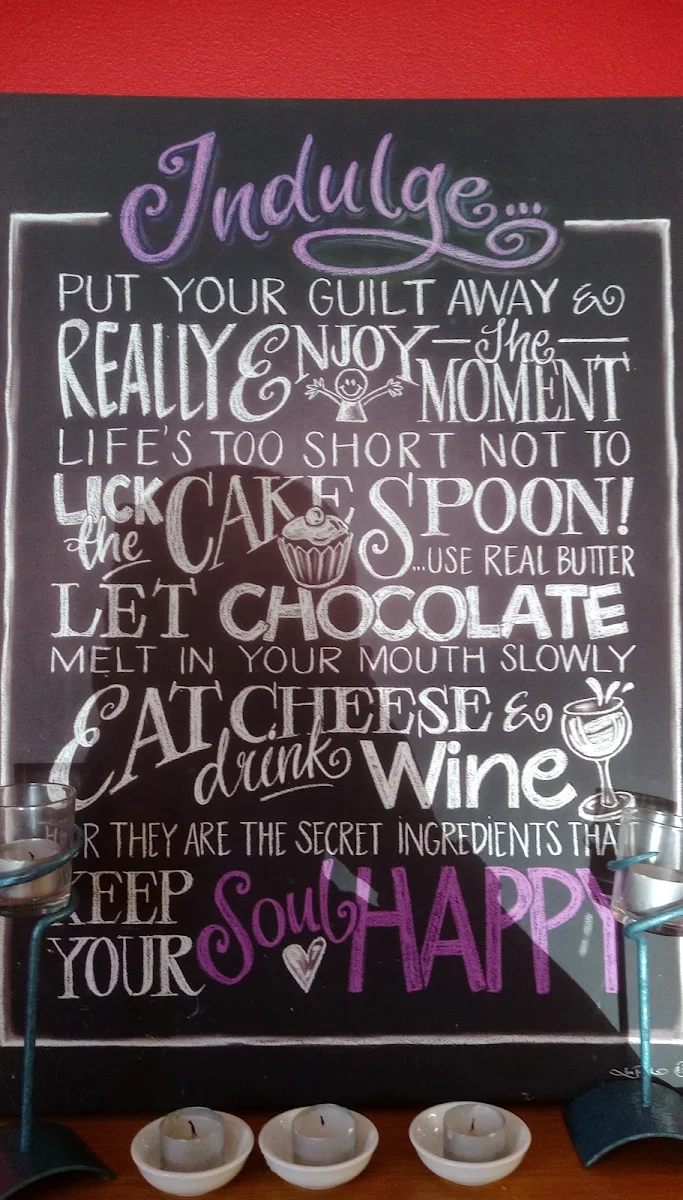 Indulge...
PUT YOUR GUILT AWAY &
REALLY ENJOY The MOMENT
LIFE'S TOO SHORT NOT TO
LICK the CAKE SPOON!
...USE REAL BUTTER
LET CHOCOLATE
MELT IN YOUR MOUTH SLOWLY
EAT CHEESE &
drink Wine
FOR THEY ARE THE SECRET INGREDIENTS THAT
KEEP YOUR Soul HAPPY